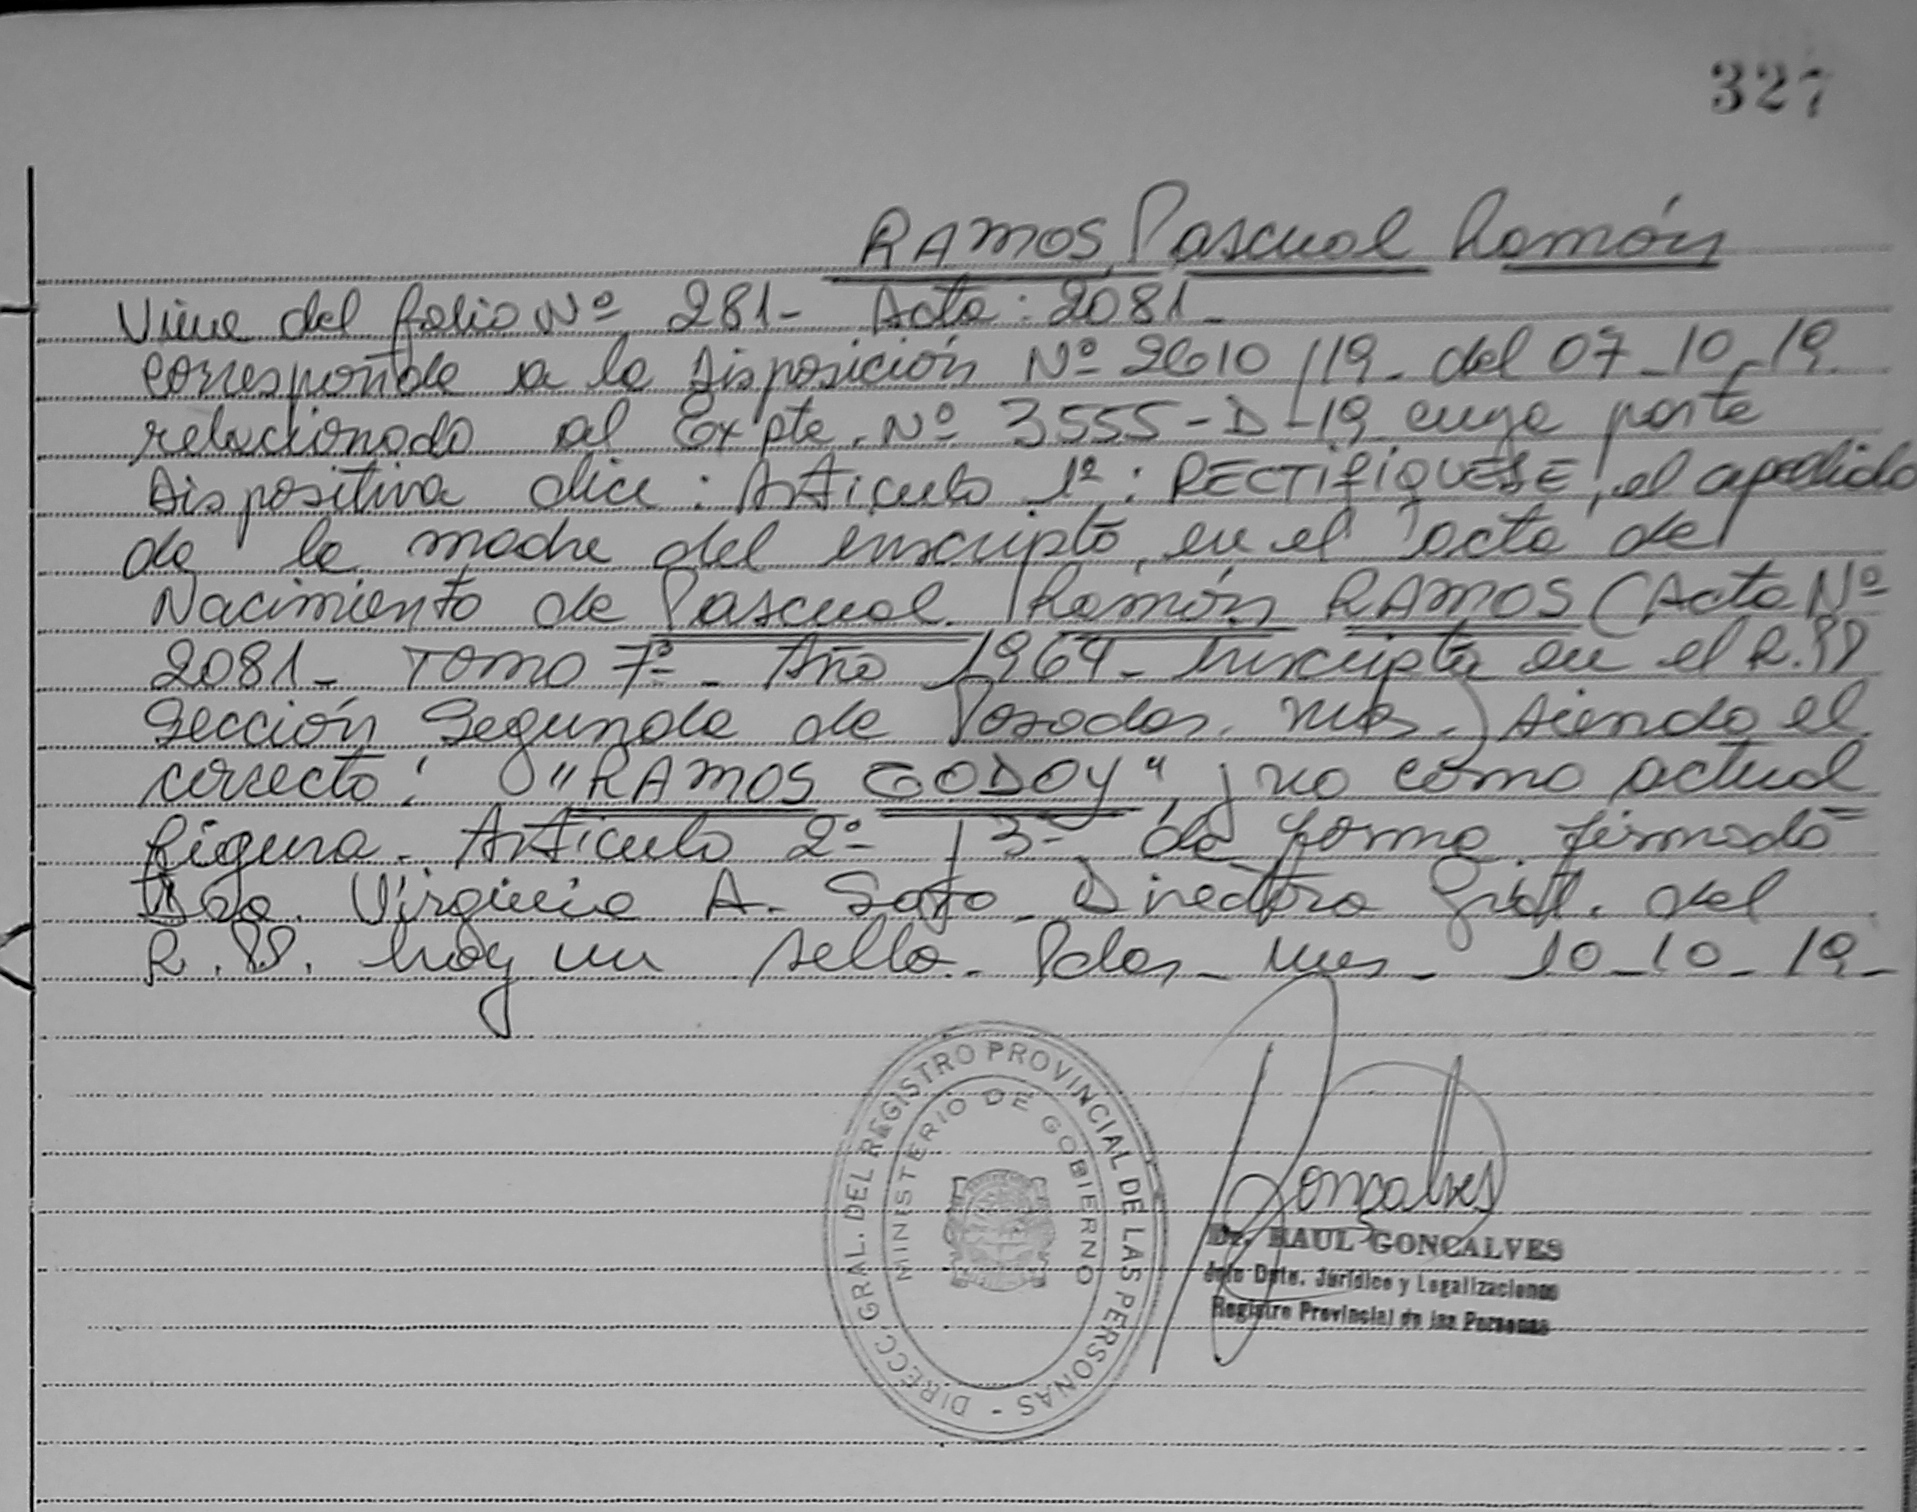 327
RAMOS, Pascual Ramón
Viene del folio Nº 281- Acta: 2081-
corresponde a la Disposición Nº 2610/19- del 07-10-19
relacionado al Expte. Nº 3555-D-19 cuya parte
Dispositiva dice: Artículo 1º: RECTIFIQUESE, el apellido
de la madre del inscripto, en el acta de
Nacimiento de Pascual Ramón RAMOS (Acta Nº
2081- Tomo 7º- Año 1964- inscripta en el R.PP
Sección Segunda de Posadas. Mnes.) siendo el
correcto: "RAMOS GODOY", y no como actual
figura. Artículo 2º y 3º de forma. firmado
Dra. Virginia A. Soto. Directora Gral. del
R.PP. hay un sello. Pdas- Mnes- 10-10-19-
DIRECC. GRAL. DEL REGISTRO PROVINCIAL DE LAS PERSONAS -
MINISTERIO DE GOBIERNO
Gonçalves
Dr. RAUL GONCALVES
Jefe Dpto. Jurídico y Legalizaciones
Registro Provincial de las Personas